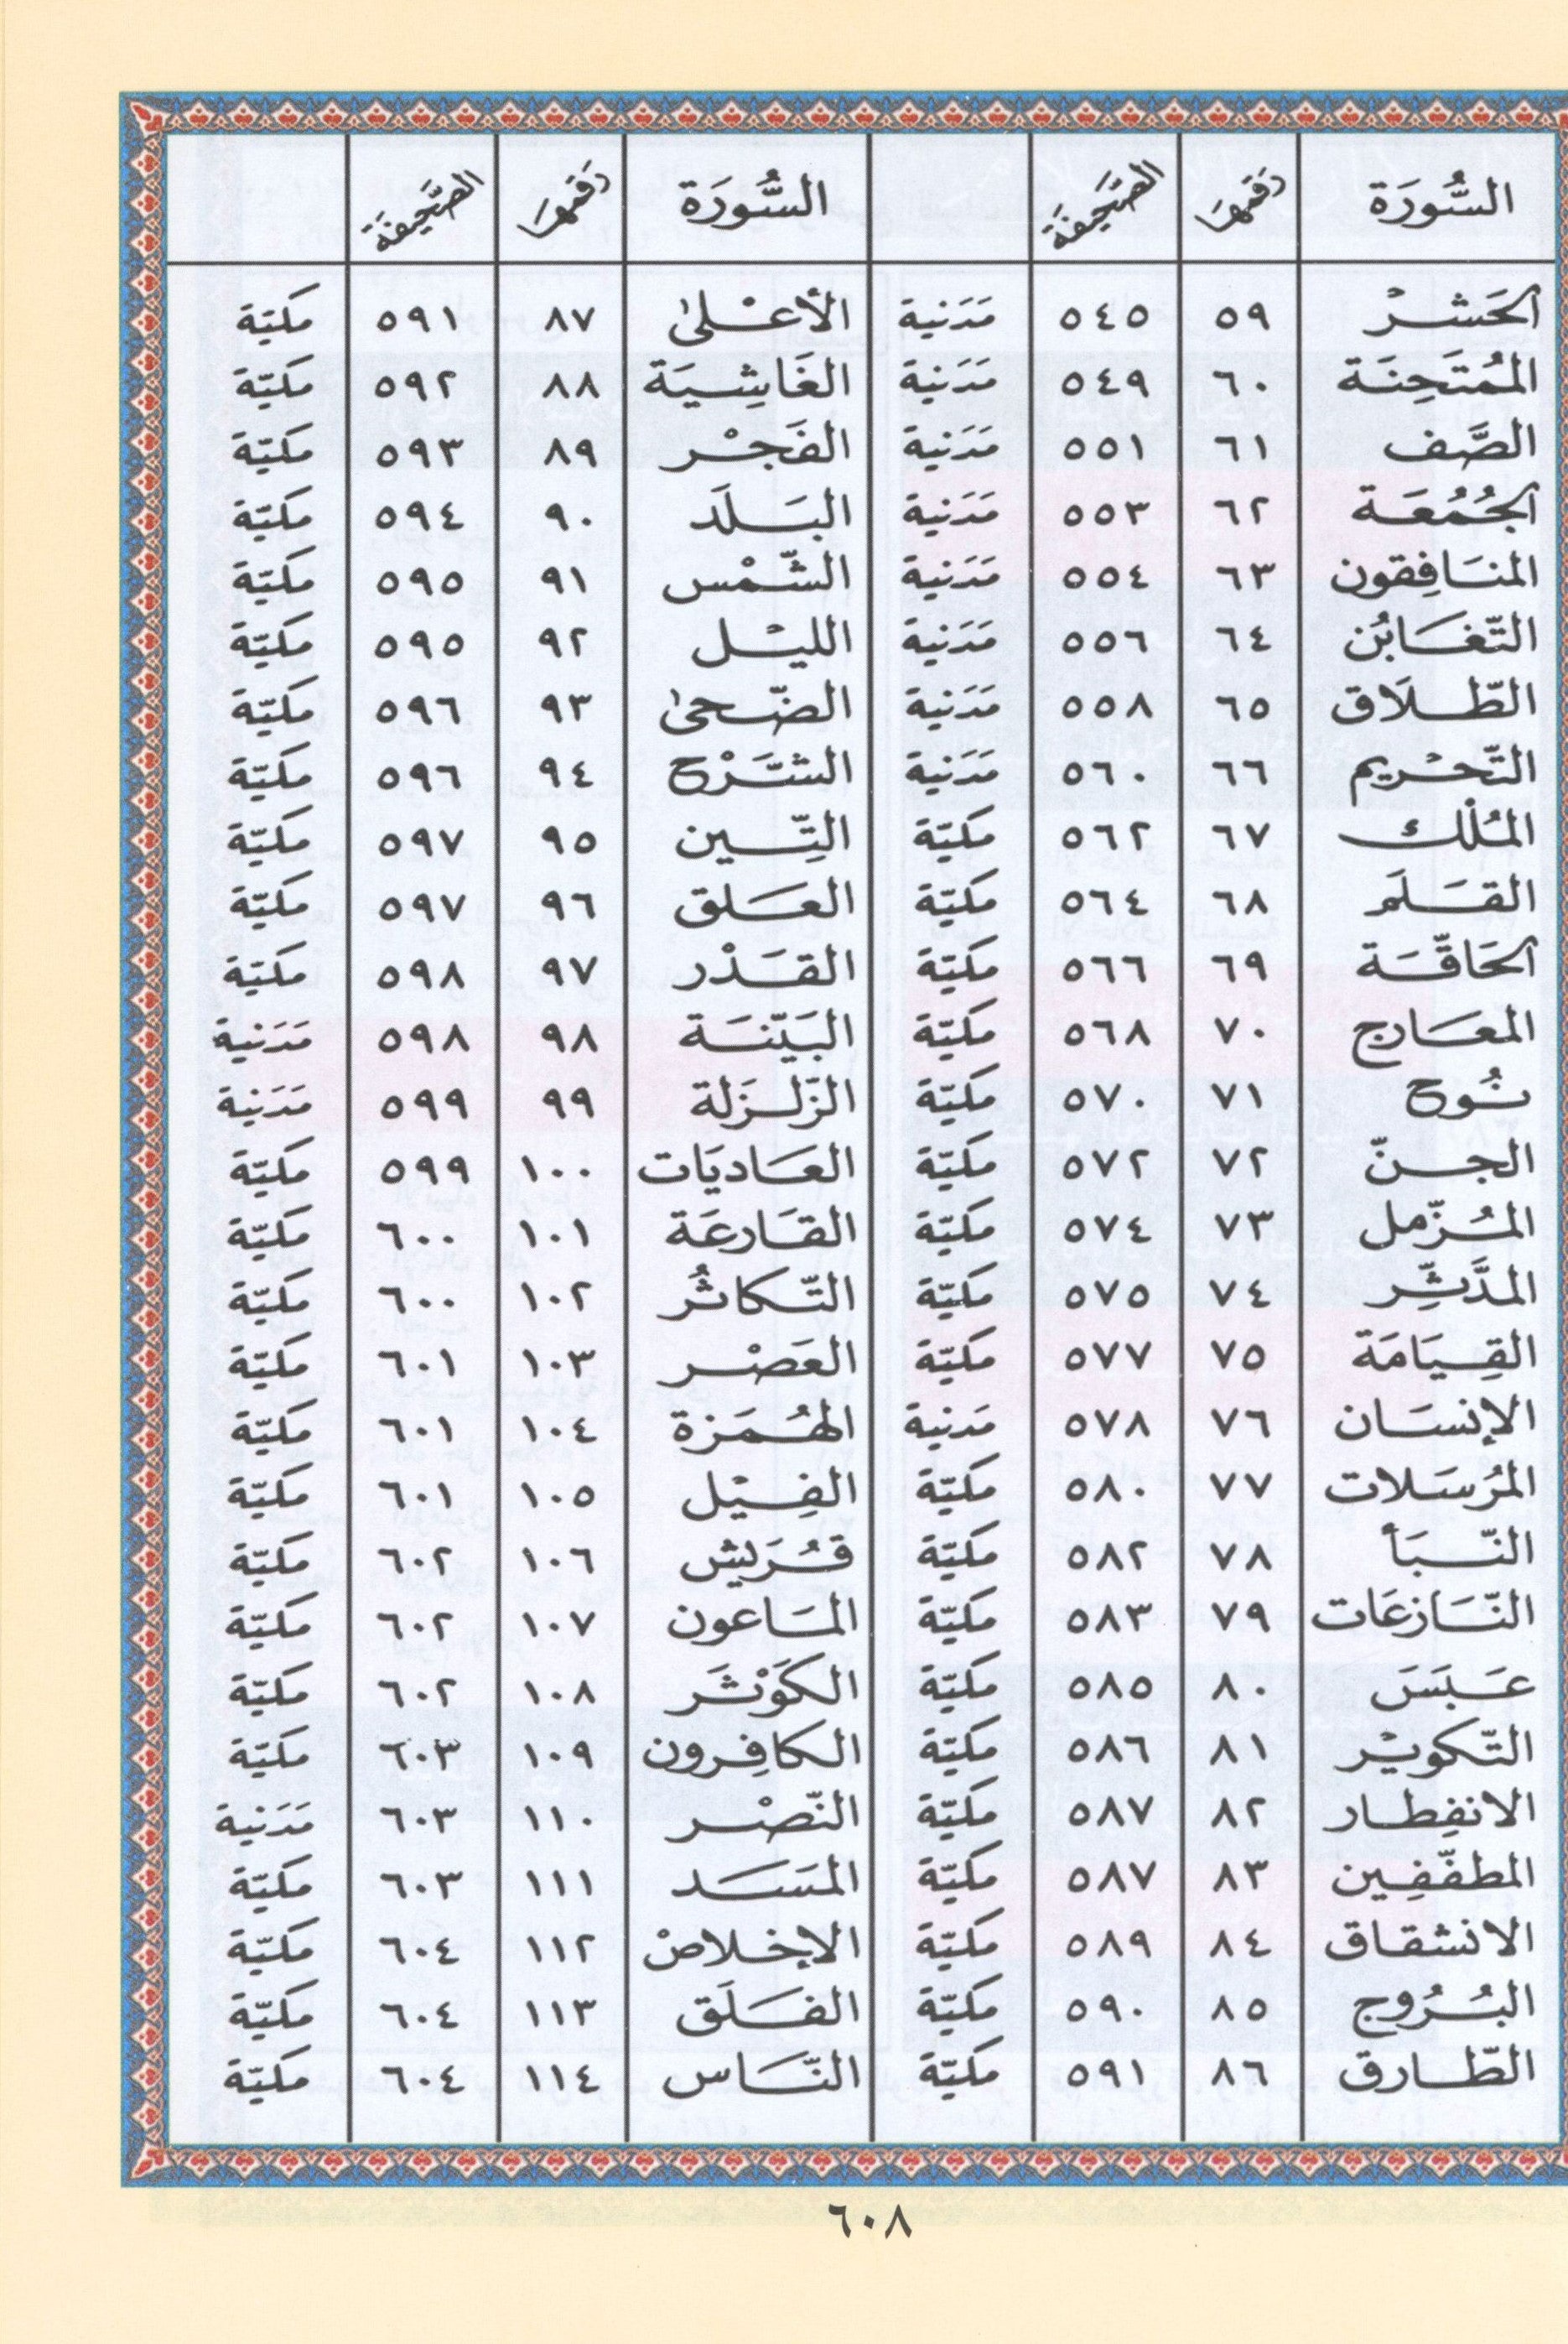 السُّورَة رَقمُهَا الصَّحِيفَة السُّورَة رَقمُهَا الصَّحِيفَة
الحَشْر ٥٩ ٥٤٥ مَدَنية الأعْلىٰ ٨٧ ٥٩١ مكيّة
المُمتَحِنَة ٦٠ ٥٤٩ مَدَنية الغَاشِيَة ٨٨ ٥٩٢ مكيّة
الصَّف ٦١ ٥٥١ مَدَنية الفَجْر ٨٩ ٥٩٣ مكيّة
الجُمُعَة ٦٢ ٥٥٣ مَدَنية البَلَد ٩٠ ٥٩٤ مكيّة
المنَافِقون ٦٣ ٥٥٤ مَدَنية الشّمْس ٩١ ٥٩٥ مكيّة
التّغَابُن ٦٤ ٥٥٦ مَدَنية الليْل ٩٢ ٥٩٥ مكيّة
الطّلَاق ٦٥ ٥٥٨ مَدَنية الضّحىٰ ٩٣ ٥٩٦ مكيّة
التّحْريم ٦٦ ٥٦٠ مَدَنية الشَّرْح ٩٤ ٥٩٦ مكيّة
المُلْك ٦٧ ٥٦٢ مكيّة التِّين ٩٥ ٥٩٧ مكيّة
القَلَم ٦٨ ٥٦٤ مكيّة العَلق ٩٦ ٥٩٧ مكيّة
الحَاقّة ٦٩ ٥٦٦ مكيّة القَدْر ٩٧ ٥٩٨ مكيّة
المعَارج ٧٠ ٥٦٨ مكيّة البَيّنَة ٩٨ ٥٩٨ مَدَنية
نُوح ٧١ ٥٧٠ مكيّة الزّلزَلة ٩٩ ٥٩٩ مَدَنية
الجنّ ٧٢ ٥٧٢ مكيّة العَاديَات ١٠٠ ٥٩٩ مكيّة
المُزّمل ٧٣ ٥٧٤ مكيّة القَارعَة ١٠١ ٦٠٠ مكيّة
المدَّثِّر ٧٤ ٥٧٥ مكيّة التّكاثُر ١٠٢ ٦٠٠ مكيّة
القِيَامَة ٧٥ ٥٧٧ مكيّة العَصْر ١٠٣ ٦٠١ مكيّة
الإنسَان ٧٦ ٥٧٨ مَدنية الهُمَزة ١٠٤ ٦٠١ مكيّة
المُرسَلات ٧٧ ٥٨٠ مكيّة الفِيْل ١٠٥ ٦٠١ مكيّة
النّبَأ ٧٨ ٥٨٢ مكيّة قُرَيش ١٠٦ ٦٠٢ مكيّة
النّازعَات ٧٩ ٥٨٣ مكيّة المَاعون ١٠٧ ٦٠٢ مكيّة
عَبَسَ ٨٠ ٥٨٥ مكيّة الكَوْثَر ١٠٨ ٦٠٢ مكيّة
التّكويْر ٨١ ٥٨٦ مكيّة الكافِرون ١٠٩ ٦٠٣ مكيّة
الانفِطار ٨٢ ٥٨٧ مكيّة النّصْر ١١٠ ٦٠٣ مَدَنية
المطفّفِين ٨٣ ٥٨٧ مكيّة المَسَد ١١١ ٦٠٣ مكيّة
الانشقاق ٨٤ ٥٨٩ مكيّة الإخلاصْ ١١٢ ٦٠٤ مكيّة
البُرُوج ٨٥ ٥٩٠ مكيّة الفَلَق ١١٣ ٦٠٤ مكيّة
الطّارق ٨٦ ٥٩١ مكيّة النّاس ١١٤ ٦٠٤ مكيّة
٦٠٨